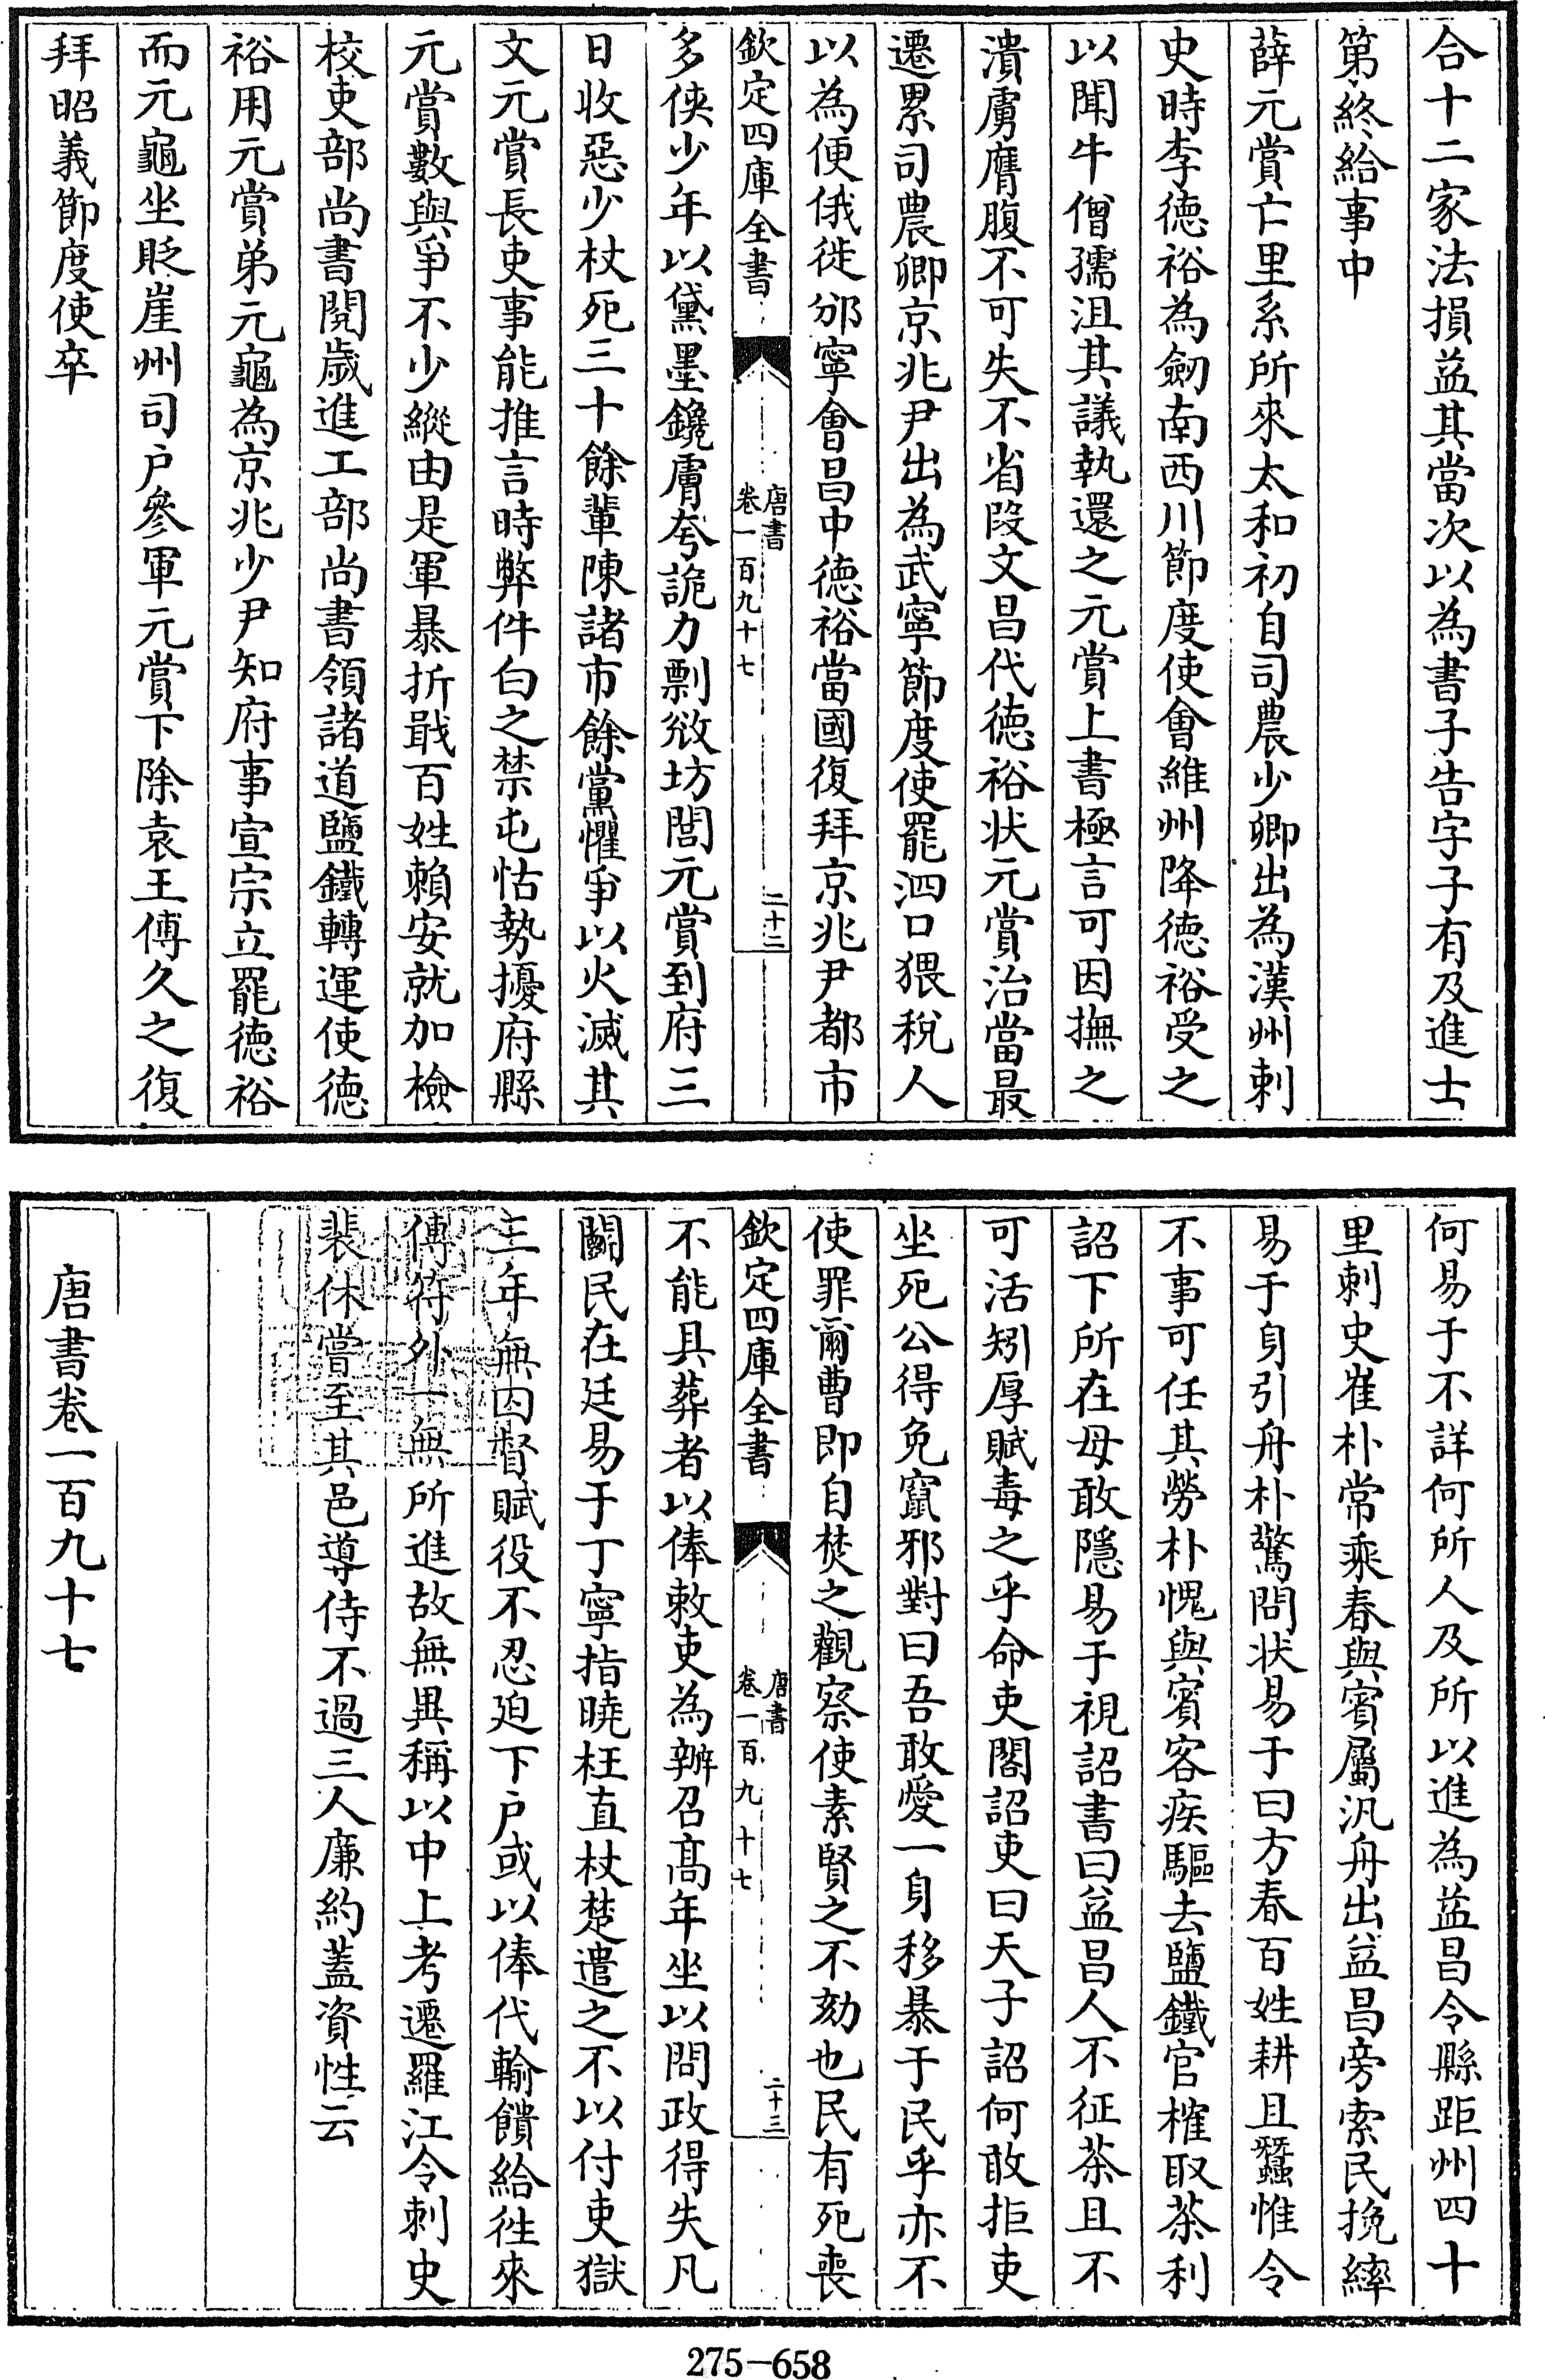 合十二家法損益其當次以為書子告字子有及進士
第終給事中
薛元賞亡里系所來太和初自司農少卿出為漢州刺
史時李徳裕為劒南西川節度使會維州降徳裕受之
以聞牛僧孺沮其議執還之元賞上書極言可因撫之
潰虜膺腹不可失不省段文昌代徳裕狀元賞治當最
遷累司農卿京兆尹出為武寧節度使罷泗口猥稅人
以為便俄徙邠寧會昌中徳裕當國復拜京兆尹都市
欽定四庫全書
唐書
卷一百九十七
二十二
多俠少年以黛墨鑱膚夸詭力剽敓坊閭元賞到府三
日收惡少杖死三十餘輩陳諸市餘黨懼爭以火滅其
文元賞長吏事能推言時弊件白之禁屯怙勢擾府縣
元賞數與爭不少縱由是軍暴折戢百姓賴安就加檢
校吏部尚書閱歲進工部尚書領諸道鹽鐵轉運使徳
裕用元賞弟元龜為京兆少尹知府事宣宗立罷徳裕
而元龜坐貶崖州司户參軍元賞下除袁王傅久之復
拜昭義節度使卒
何易于不詳何所人及所以進為益昌令縣距州四十
里刺史崔朴常乘春與賓屬汎舟出益昌旁索民挽繂
易于身引舟朴驚問状易于曰方春百姓耕且蠶惟令
不事可任其勞朴愧與賓客疾驅去鹽鐵官榷取茶利
詔下所在毋敢隱易于視詔書曰益昌人不征茶且不
可活矧厚賦毒之乎命吏閣詔吏曰天子詔何敢拒吏
坐死公得免竄邪對曰吾敢愛一身移暴于民乎亦不
使罪爾曹即自焚之觀察使素賢之不劾也民有死喪
欽定四庫全書
唐書
卷一百九十七
二十三
不能具葬者以俸敕吏為辦召髙年坐以問政得失凡
鬬民在廷易于丁寧指曉枉直杖楚遣之不以付吏獄
三年無囚督賦役不忍迫下户或以俸代輸饋給徃來
傳符外一無所進故無異稱以中上考遷羅江令刺史
裴休嘗至其邑導侍不過三人廉約蓋資性云
唐書卷一百九十七
275-658